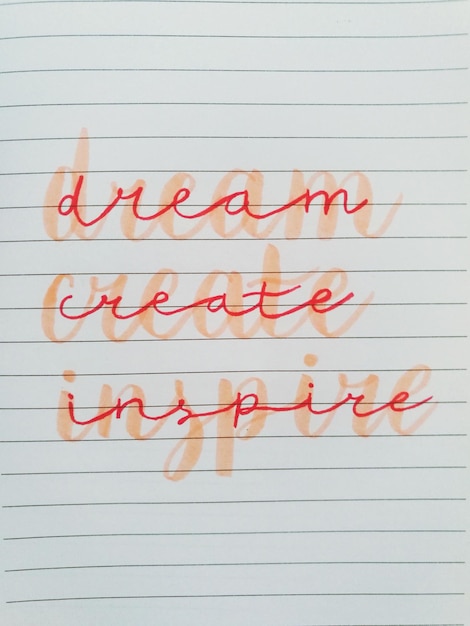 dream
create
inspire